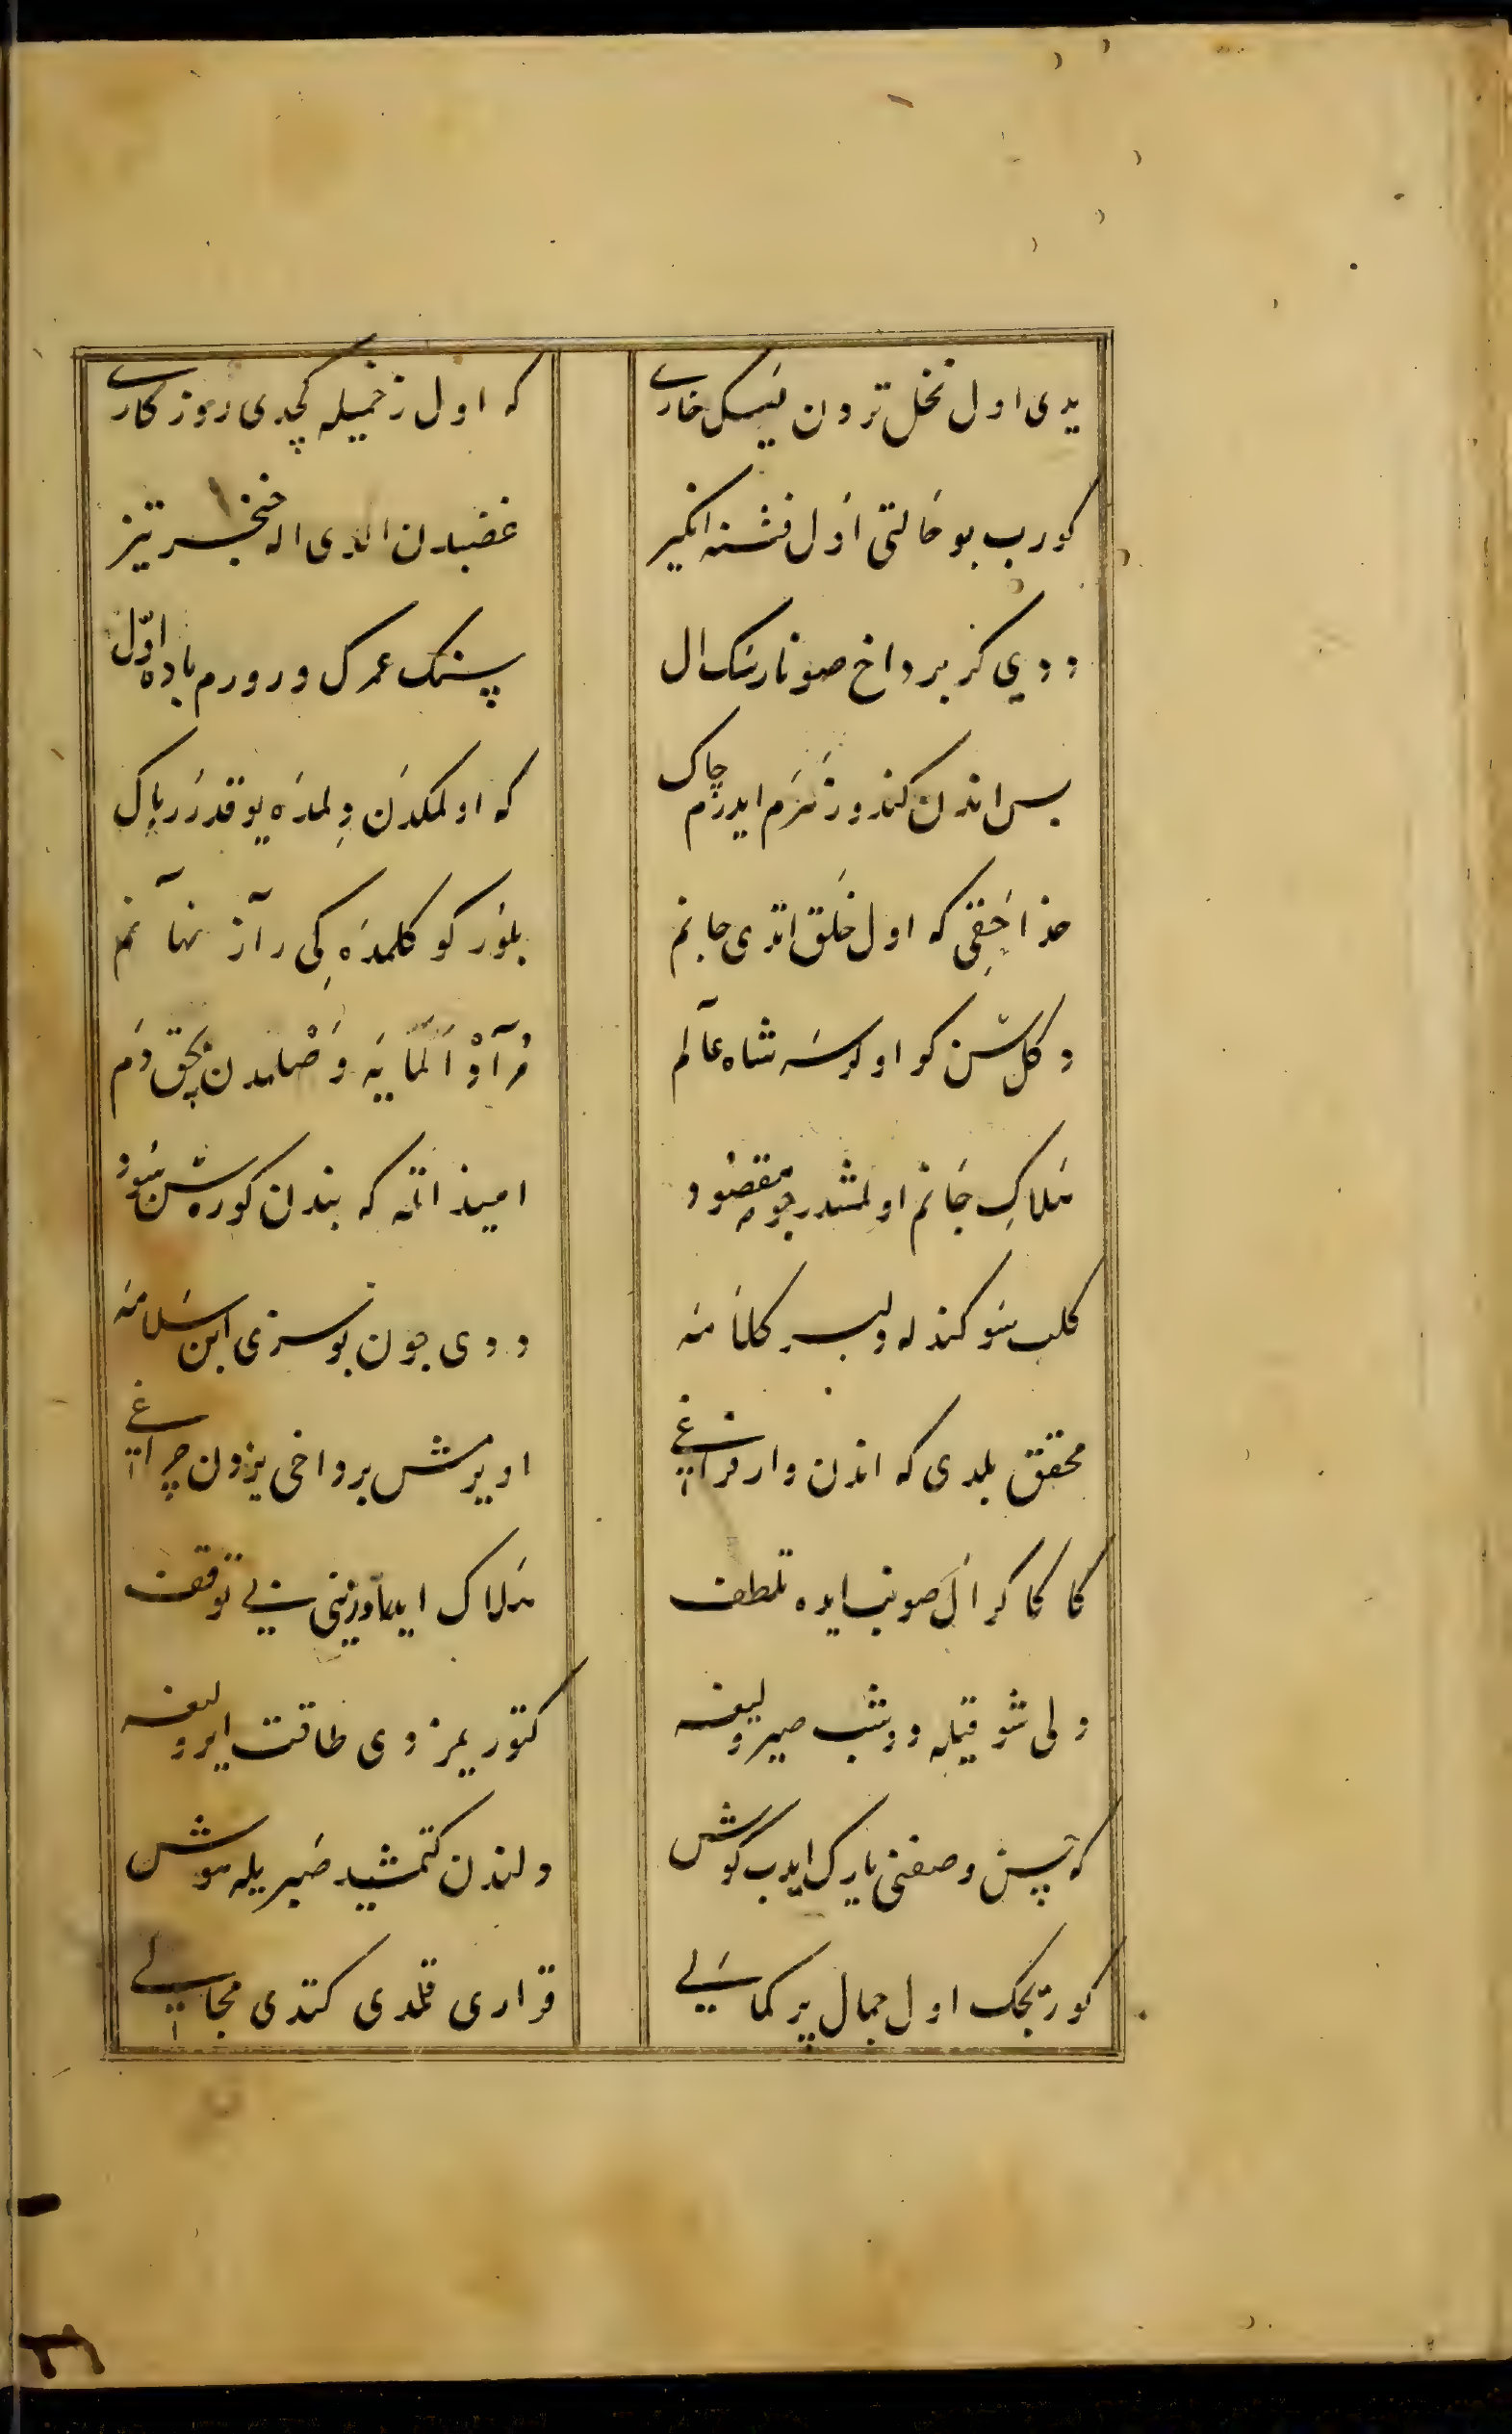 یدی اول نخل تردن نیک خاری
که اول زخمیله کچدی روزکاری
کورب بو حالتی اول فتنه انکیز
غضبدن الدی اله خنجر تیز
ددی کر بر داخ صونارسک ال
پسنک عمرک ورورم باده اول
بس اندن کندوزمزم ایدرم چاک
که اولمکدن دلمده یوقدرر باک
خدا حقی که اول خلق اتدی جانم
بلور کو کلمده کی راز نهانم
دکل سن کو اولورسه شاه عالم
مراد المایه وصلمدن بحق دم
هلاک جانم اولمشدر چو مقصود
امید اتمه که بندن کوره سن سود
کلب سو کنده دلبر کلامنه
ددی چون بو سزی ابن سلامنه
محقق بلدی که اندن وار فراغی
اویرمش بر داخی یزدن چراغی
کا کا کر ال صونب ایده تلطف
هلاک ایلر اوزینی بی توقف
ولی شوقیله دوشب صبر ولیفه
کتوریمزدی طاقت ایرولیفه
که پسن وصفنی یارک ایدب کوش
دلندن کتمشید صبریله هوش
کوریجک اول جمال پر کمالی
قراری قلمدی کتدی مجالی